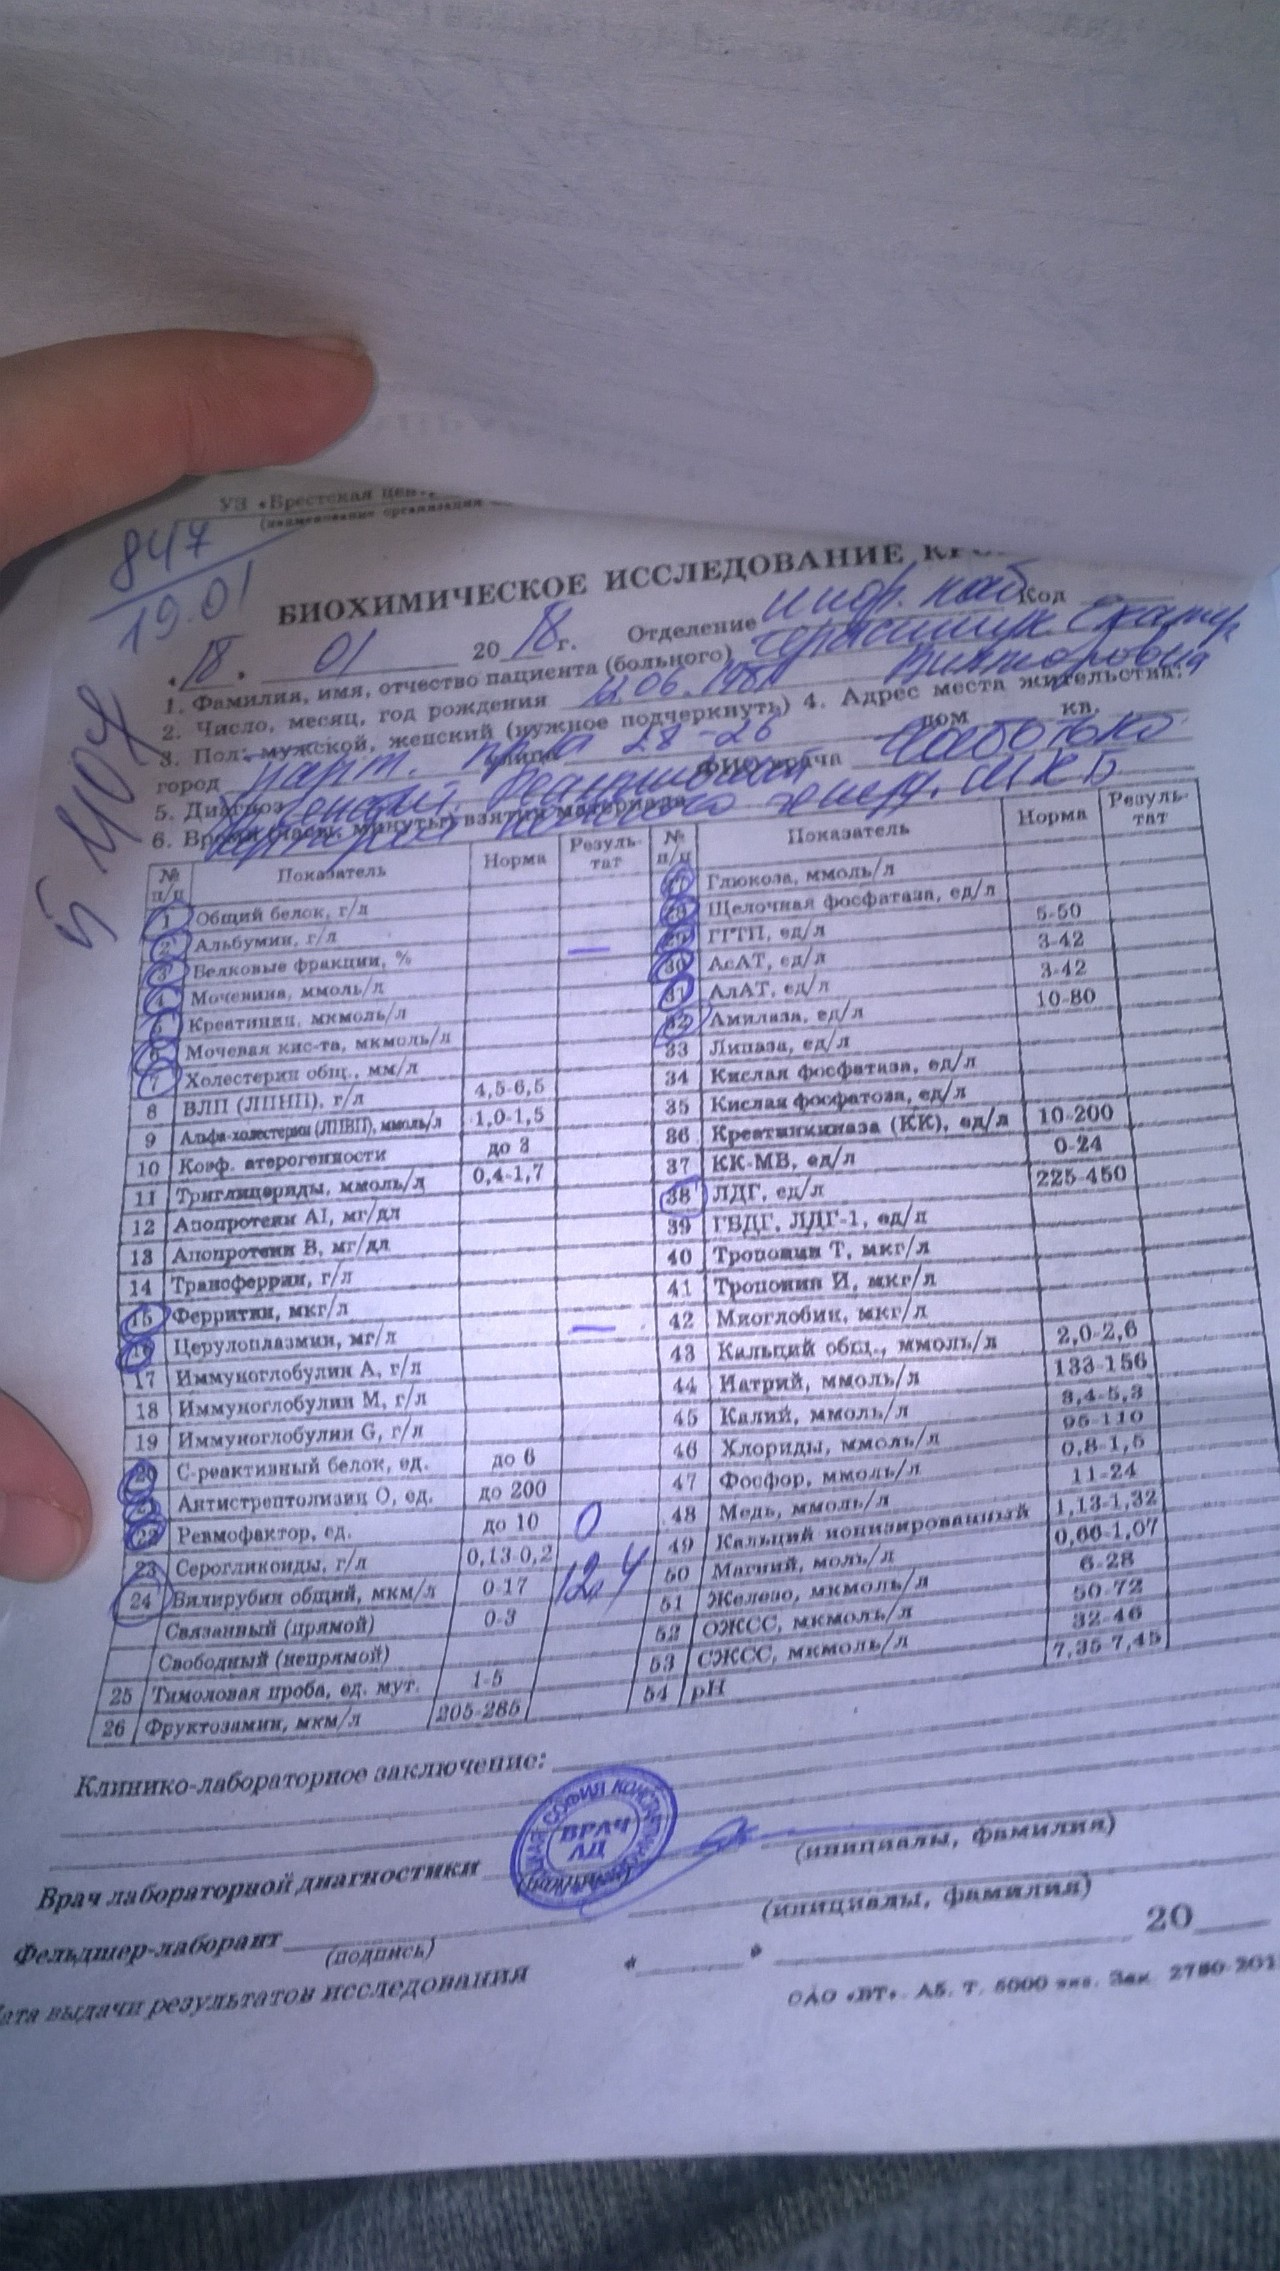 УЗ «Брестская цен
(наименование организации
847
19.01
БИОХИМИЧЕСКОЕ ИССЛЕДОВАНИЕ
«18» 01 2018 г. Отделение инф. каб. Код
1. Фамилия, имя, отчество пациента (больного)
Викторовна
2. Число, месяц, год рождения
3. Пол: мужской, женский (нужное подчеркнуть) 4. Адрес места жительства:
город улица 28-26 дом кв.
5. Диагноз ФИО врача
6. Время (часы, минуты) взятия материала МКБ
№ п/п Показатель Норма Резуль-тат № п/п Показатель Норма Резуль-тат
1 Общий белок, г/л
2 Альбумин, г/л —
3 Белковые фракции, %
4 Мочевина, ммоль/л
5 Креатинин, мкмоль/л
6 Мочевая кис-та, мкмоль/л
7 Холестерин общ., мм/л
8 ВЛП (ЛПНП), г/л 4,5-6,5
9 Альфа-холестерин (ЛПВП), ммоль/л 1,0-1,5
10 Коэф. атерогенности до 3
11 Триглицериды, ммоль/л 0,4-1,7
12 Апопротеин AI, мг/дл
13 Апопротеин В, мг/дл
14 Трансферрин, г/л
15 Ферритин, мкг/л
16 Церулоплазмин, мг/л —
17 Иммуноглобулин А, г/л
18 Иммуноглобулин М, г/л
19 Иммуноглобулин G, г/л
20 С-реактивный белок, ед. до 6
21 Антистрептолизин О, ед. до 200
22 Ревмофактор, ед. до 10 0
23 Серогликоиды, г/л 0,13-0,2
24 Билирубин общий, мкм/л 0-17 12,4
Связанный (прямой) 0-3
Свободный (непрямой)
25 Тимоловая проба, ед. мут. 1-5
26 Фруктозамин, мкм/л 205-285
27 Глюкоза, ммоль/л
28 Щелочная фосфатаза, ед/л
29 ГГТП, ед/л 5-50
30 АсАТ, ед/л 3-42
31 АлАТ, ед/л 3-42
32 Амилаза, ед/л 10-80
33 Липаза, ед/л
34 Кислая фосфатаза, ед/л
35 Кислая фосфатоза, ед/л
36 Креатинкиназа (КК), ед/л 10-200
37 КК-МВ, ед/л 0-24
38 ЛДГ, ед/л 225-450
39 ГБДГ, ЛДГ-1, ед/л
40 Тропонин Т, мкг/л
41 Тропонин И, мкг/л
42 Миоглобин, мкг/л
43 Кальций общ., ммоль/л 2,0-2,6
44 Натрий, ммоль/л 133-156
45 Калий, ммоль/л 3,4-5,3
46 Хлориды, ммоль/л 95-110
47 Фосфор, ммоль/л 0,8-1,5
48 Медь, ммоль/л 11-24
49 Кальций ионизированный 1,13-1,32
50 Магний, моль/л 0,66-1,07
51 Железо, мкмоль/л 6-28
52 ОЖСС, мкмоль/л 50-72
53 СЖСС, мкмоль/л 32-46
54 pH 7,35-7,45
Клинико-лабораторное заключение:
СОФИЯ
ВРАЧ
ЛД
Врач лабораторной диагностики (подпись) (инициалы, фамилия)
Фельдшер-лаборант (подпись) (инициалы, фамилия)
ата выдачи результатов исследования « » 20
ОАО «БТ». А5. Т. 5000 экз. Зак. 2780-201